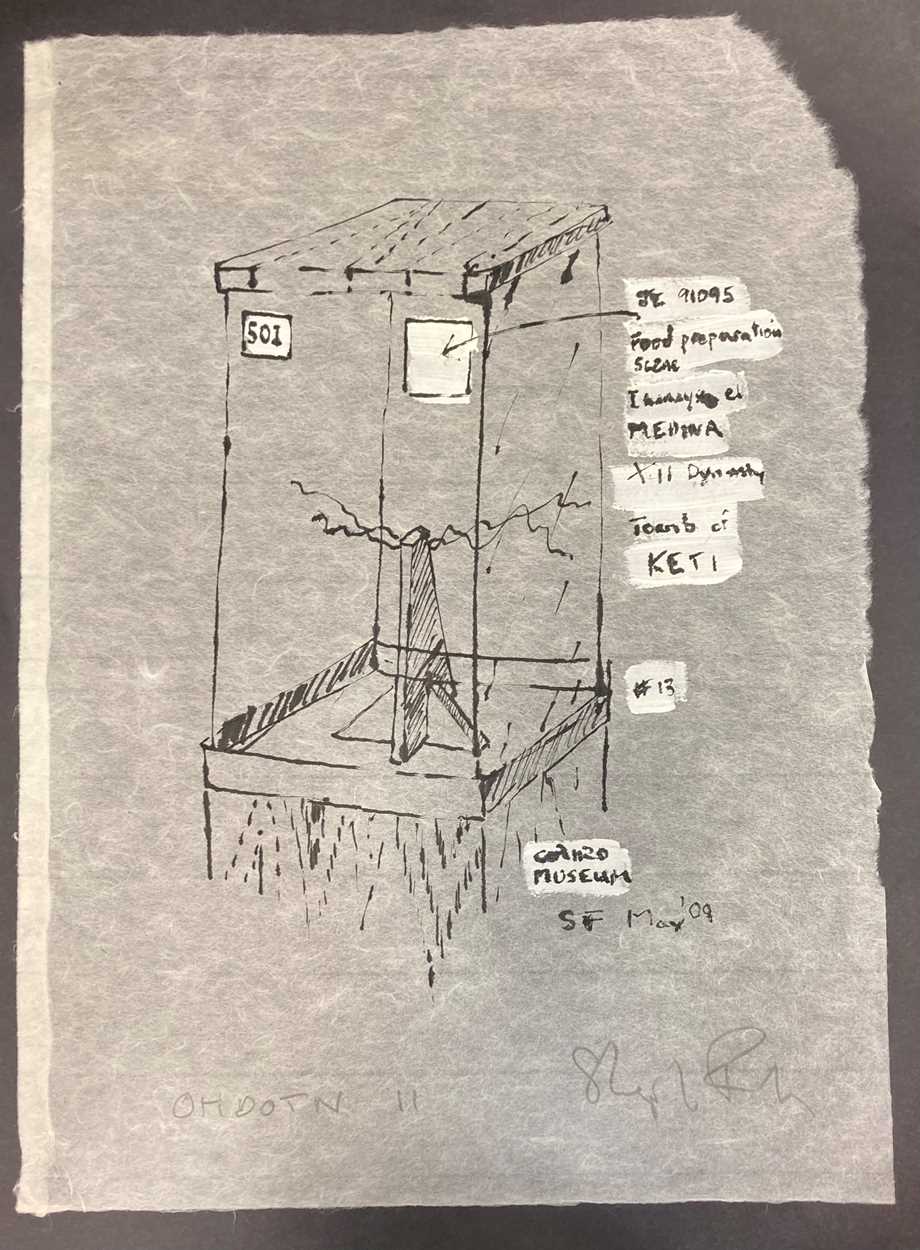 501
JE 91095
Food preparation
Scene
el
MEDINA
XII Dynasty
Tomb of
KETI
#13
CAIRO
MUSEUM
SF May '09
OHDOTN 11